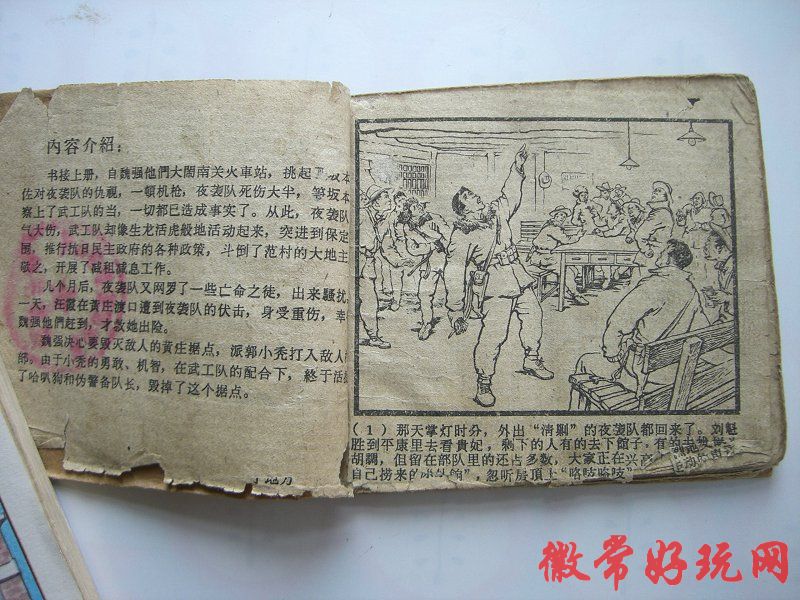 內容介紹：
书接上册，自魏强他們大鬧南关火車站，挑起了坂本
佐对夜袭队的仇視，一頓机枪，夜袭队死伤大半，等坂本
察上了武工队的当，一切都已造成事实了。从此，夜袭队
气大伤，武工队却像生龙活虎般地活动起来，突进到保定
围，推行抗日民主政府的各种政策，斗倒了范村的大地主
敬之，开展了减租减息工作。
几个月后，夜袭队又网罗了一些亡命之徒，出来騷扰
一天，汪霞在黃庄渡口遭到夜袭队的伏击，身受重伤，幸
魏强他們赶到，才救她出险。
魏强决心要毁灭敌人的黃庄据点，派郭小禿打入敌人
部。由于小禿的勇敢、机智，在武工队的配合下，終于活捉
了哈叭狗和伪警备队长，毀掉了这个据点。
（1）那天掌灯时分，外出“清剿”的夜袭队都回来了。刘魁
胜到平康里去看貴妃，剩下的人有的去下館子，有的去
胡調，但留在部队里的还占多数，大家正在兴
自己捞来的“小 ”，忽听房頂上“咯吱咯吱”
徽常好玩网